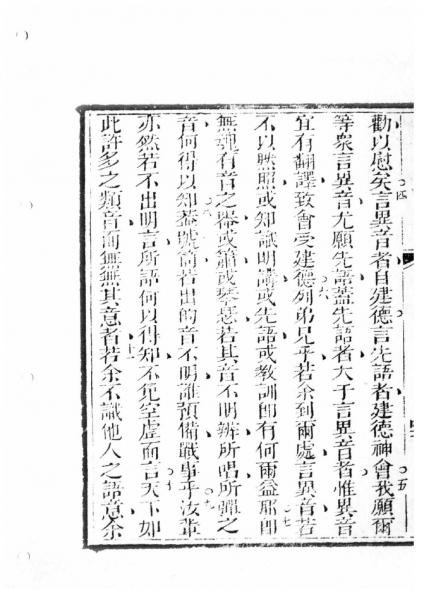 勸以慰矣四言異音者自建德言先語者建德神會五我願爾
等衆言異音尤願先語蓋先語者大于言異音者惟異音
宜有翻譯致會受建德六列弟兄乎若余到爾處言異音若
不以默照或知識明講或先語或教訓卽有何爾益耶七卽
無魂有音之器或簫或琴意若其音不明辨所唱所彈之
音何得以知八蓋號筒若出的音不明誰預備戰事乎九汝輩
亦然若不出明言所語何以得知不免空虛而言十天下如
此許多之類音而無無其意者十一若余不識他人之語意余